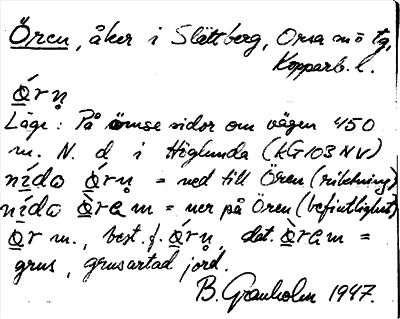 Ören, åker i Slättberg, Orsa sn o tg,
Kopparb. l.
Ö́rṇ
Läge: På ömse sidor om vägen 450
m. N. d i Höglunda (kG103NV)
nído Ö́rṇ = ned till Ören (riktning)
nído Ö́råm = ner på Ören (befintlighet)
Ör m., best. f. Ö́rṇ, dat. Ö́råm =
grus, grusartad jord.
B. Granholm 1947.